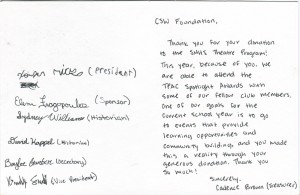 CSW Foundation,
Thank you for your donation
to the SHHS Theatre Program!
This year, because of you, we
are able to attend the
TPAC Spotlight Awards with
some of our fellow club members.
One of our goals for the
current school year is to go
to events that provide
learning opportunities and
community building and you made
this a reality through your
generous donation. Thank you
so much!
Sincerely,
Cadence Brown (Treasurer)
(President)
Elena (Sponsor)
Sydney Williams (Historian)
David Kappel (Historian)
Baylee (Secretary)
(Vice President)